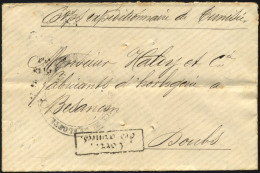 Corps expéditionnaire de Tunisie
Monsieur Haldy et Cie
Fabricants d'horlogerie à
Besançon
Doubs
CORR.
DES ARMÉES